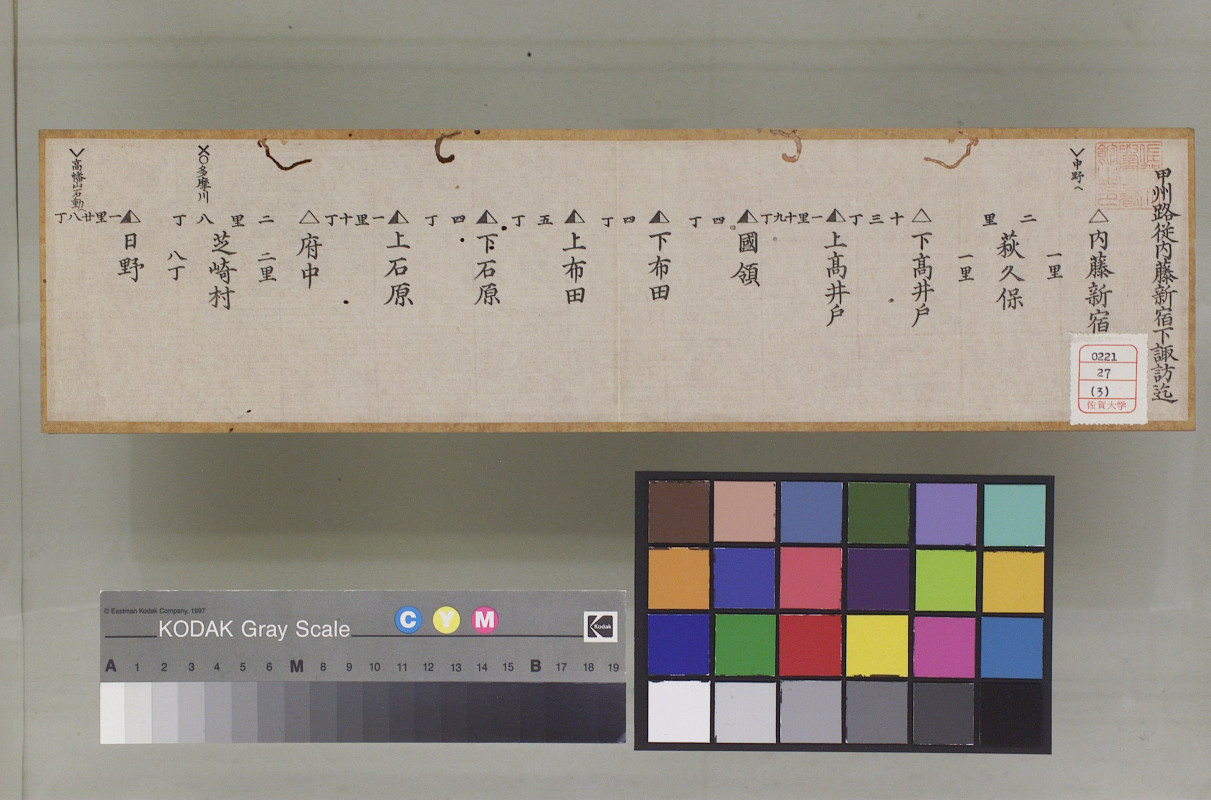 甲州路従内藤新宿下諏訪迄
中野へ
内藤新宿
一里
二里
萩久保
一里
下髙井戸
十三丁
上髙井戸
一里十九丁
國領
四丁
下布田
四丁
上布田
五丁
下石原
四丁
上石原
一里十丁
府中
二里
二里
芝崎村
〇多摩川
八丁
八丁
日野
一里廿八丁
高幡山石動
0221
27
(3)
佐賀大学
© Eastman Kodak Company, 1997
KODAK Gray Scale
C Y M
Kodak
A 1 2 3 4 5 6 M 8 9 10 11 12 13 14 15 B 17 18 19